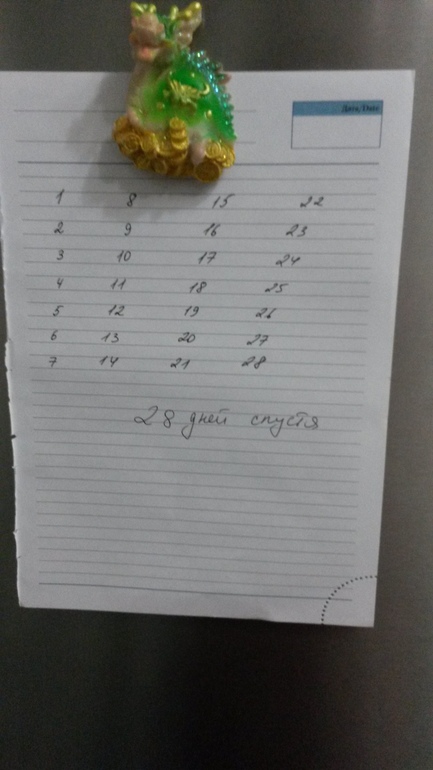 Дата/Date
1 8 15 22
2 9 16 23
3 10 17 24
4 11 18 25
5 12 19 26
6 13 20 27
7 14 21 28
28 дней спустя